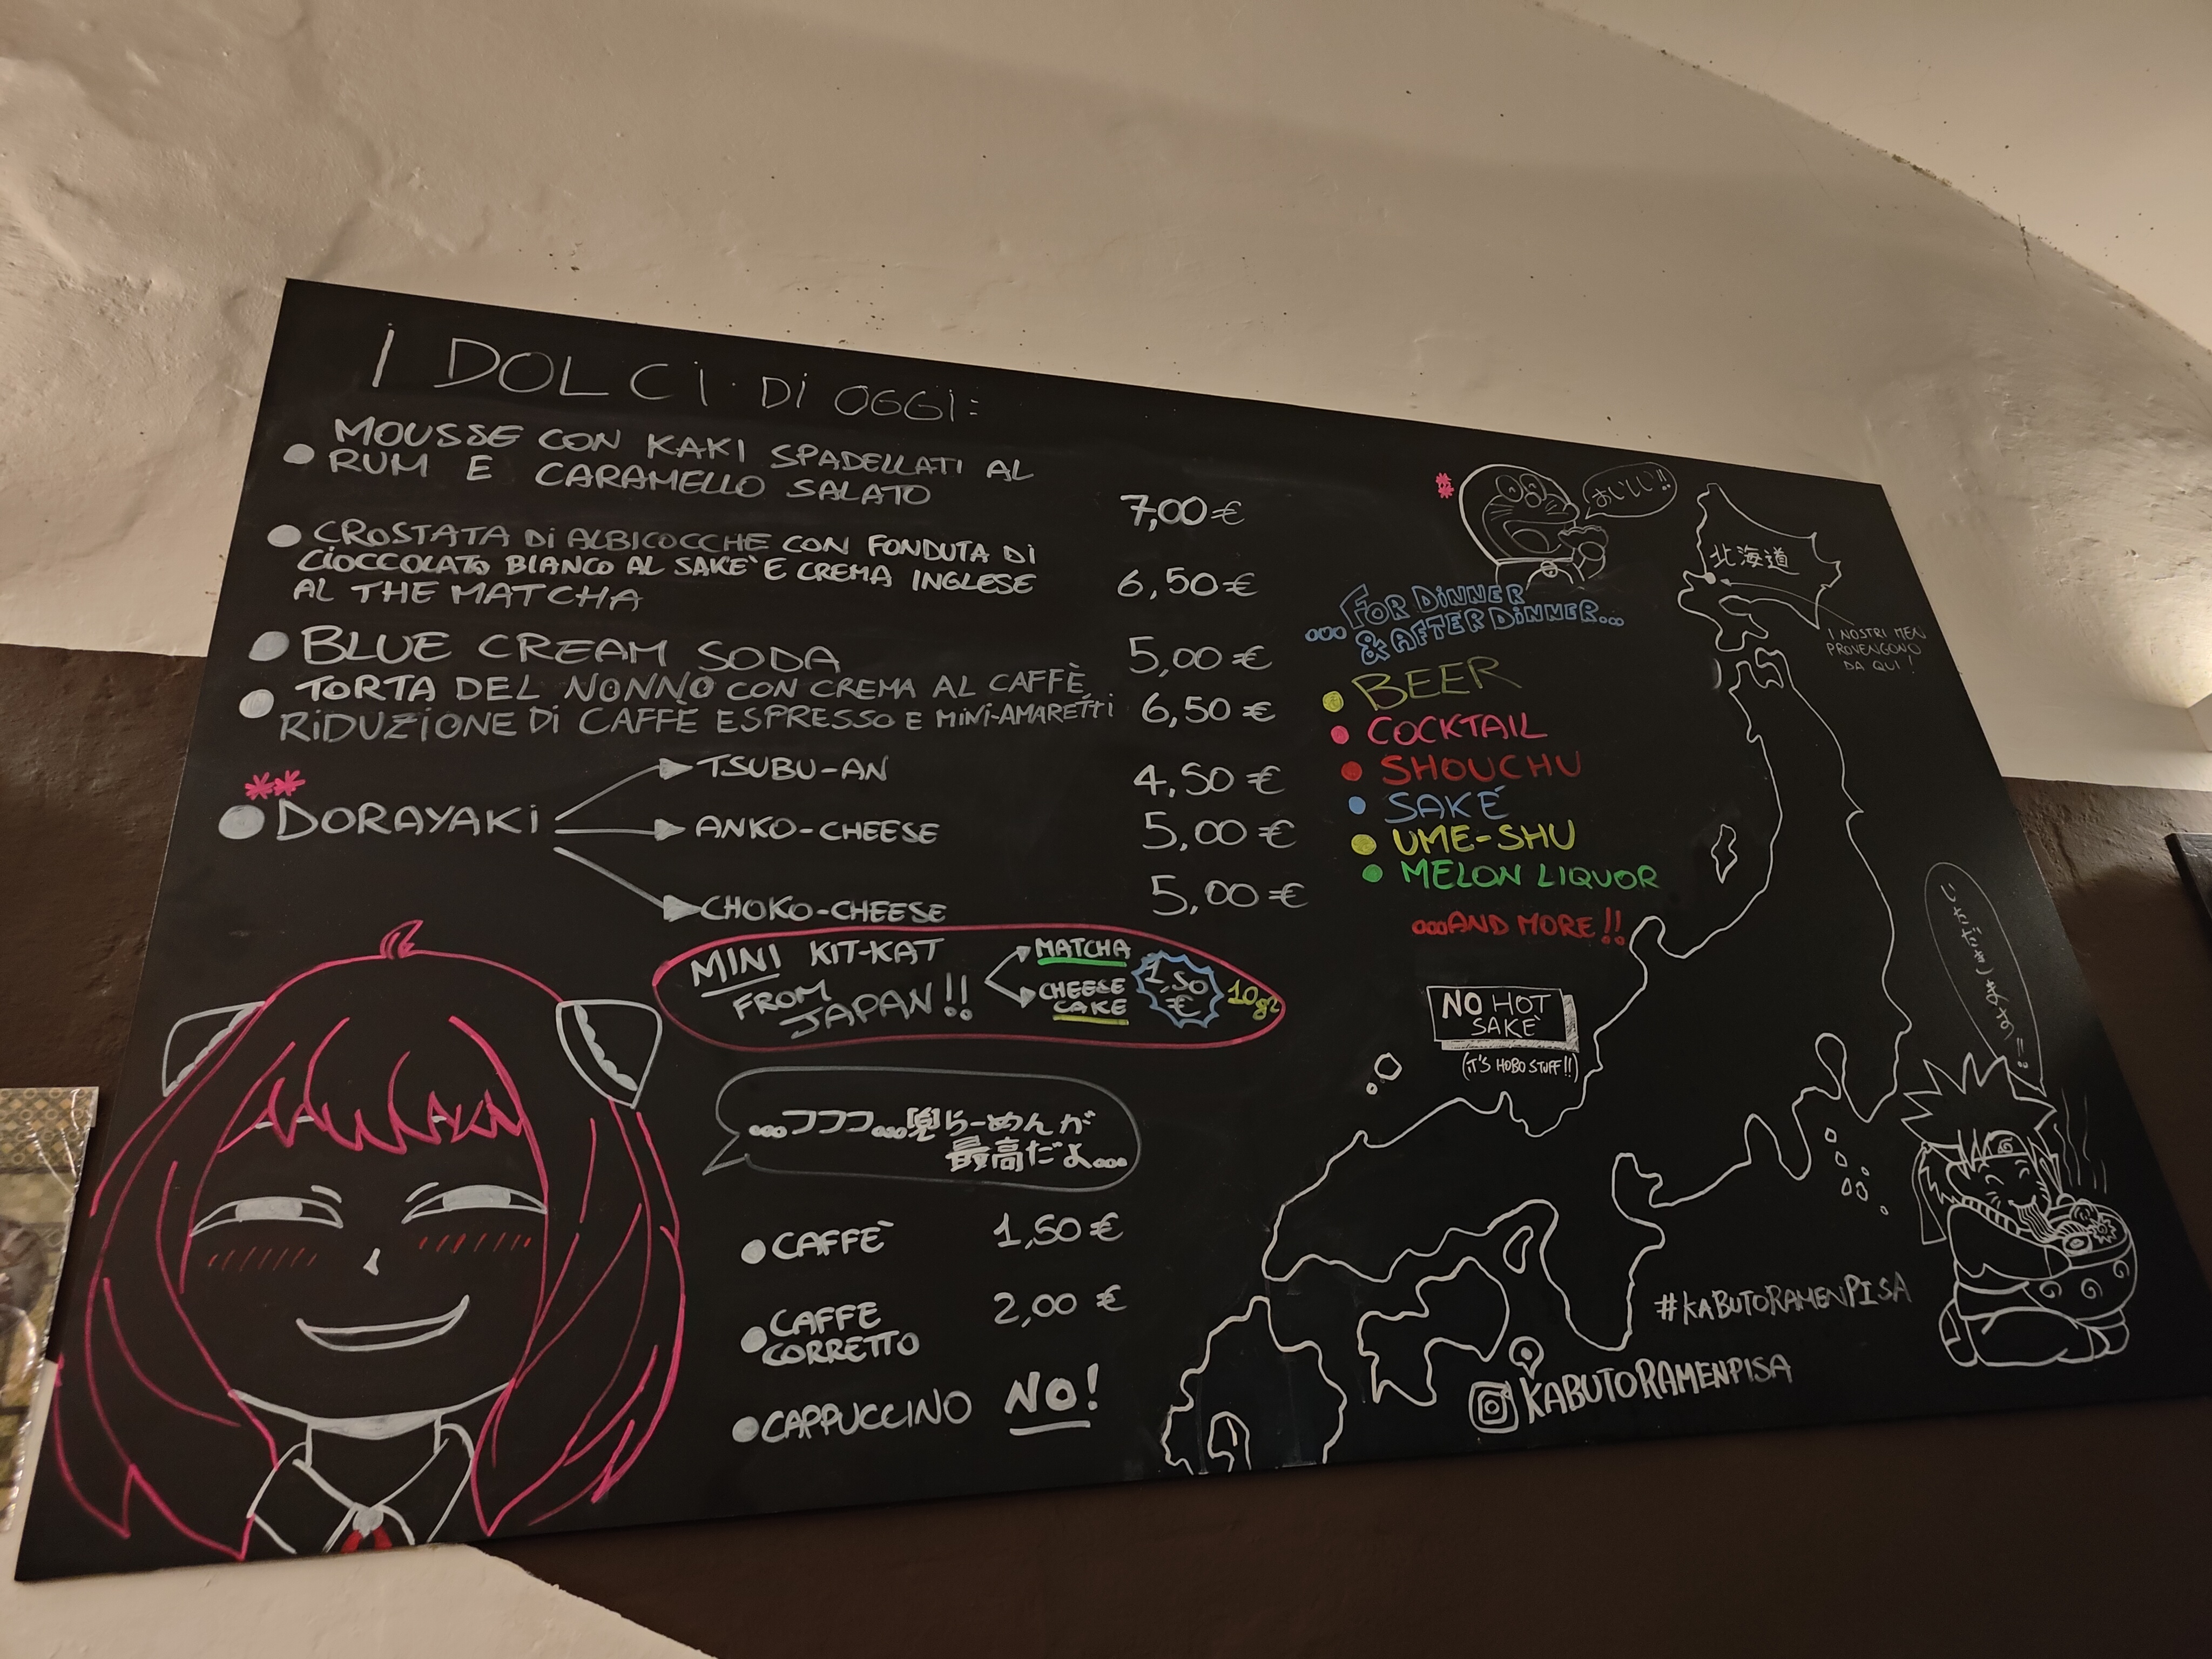 I DOLCI DI OGGI:
MOUSSE CON KAKI SPADELLATI AL
RUM E CARAMELLO SALATO
7,00 €
CROSTATA DI ALBICOCCHE CON FONDUTA DI
CIOCCOLATO BIANCO AL SAKE' E CREMA INGLESE
AL THE MATCHA
6,50 €
BLUE CREAM SODA
5,00 €
TORTA DEL NONNO CON CREMA AL CAFFÈ,
RIDUZIONE DI CAFFÈ ESPRESSO E MINI-AMARETTI
6,50 €
**
DORAYAKI
TSUBU-AN 4,50 €
ANKO-CHEESE 5,00 €
CHOKO-CHEESE 5,00 €
MINI KIT-KAT
FROM
JAPAN!!
MATCHA
CHEESE
CAKE
1,50
€
...フフフ...兜らーめんが
最高だよ...
CAFFÈ 1,50 €
CAFFE
CORRETTO
2,00 €
CAPPUCCINO NO!
**
おいしい!!
...FOR DINNER
& AFTER DINNER...
BEER
COCKTAIL
SHOUCHU
SAKÉ
UME-SHU
MELON LIQUOR
...AND MORE!!
NO HOT
SAKÈ
(IT'S HOBO STUFF!!)
北海道
I NOSTRI MEN
PROVENGONO
DA QUI!
#KABUTORAMENPISA
KABUTORAMENPISA